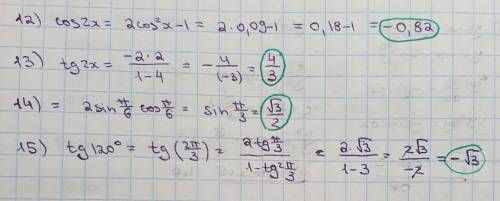 12) cos2x = 2cos²x-1 = 2·0,09-1 = 0,18-1 = -0,82
13) tg2x = -2·2/1-4 = -4/(-3) = 4/3
14) = 2sin π/6 cos π/6 = sin π/3 = √3/2
15) tg120° = tg(2π/3) = 2·tg π/3 / 1-tg² π/3 = 2·√3/1-3 = 2√3/-2 = -√3